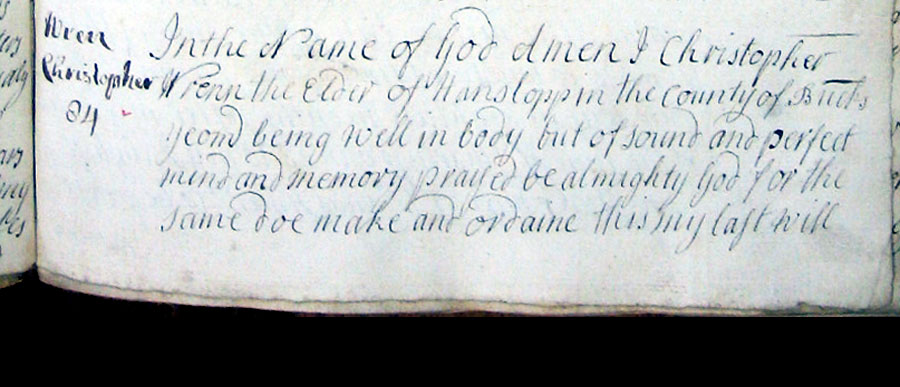 Wren
Christopher
84
In the Name of God Amen I Christopher
Wrenn the Elder of Hanslopp in the County of Bucks
yeom̄ being well in body but of sound and perfect
mind and memory praysed be almighty God for the
same doe make and ordaine this my last will